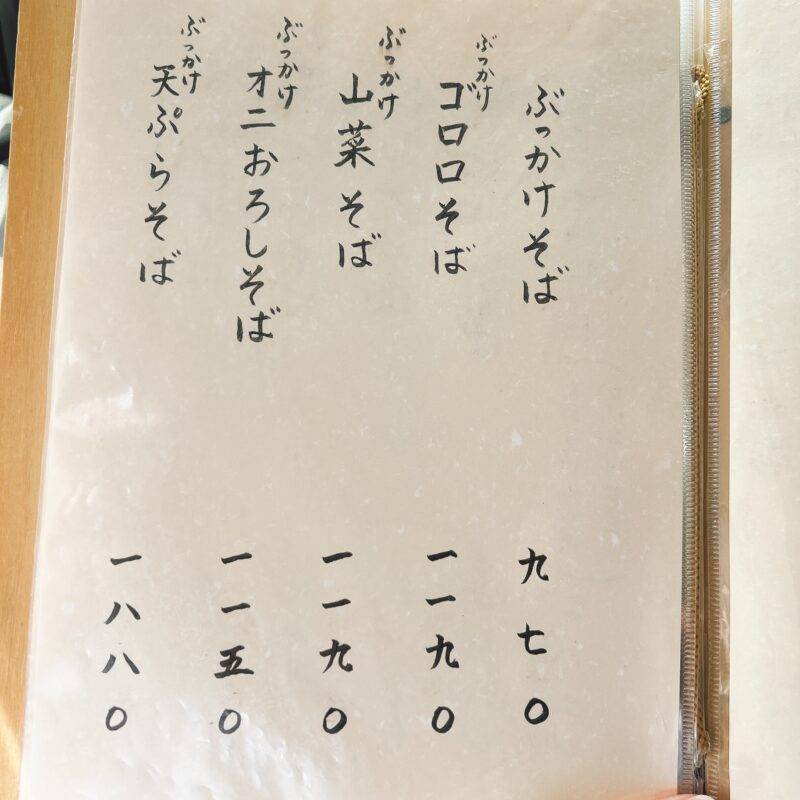 ぶっかけそば
九七〇
ぶっかけ
ゴロロそば
一一九〇
ぶっかけ
山菜そば
一一九〇
ぶっかけ
オニおろしそば
一一五〇
ぶっかけ
天ぷらそば
一八八〇